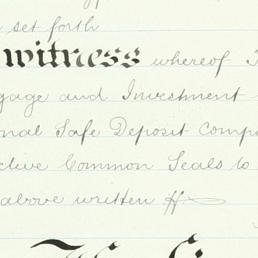 set forth
witness whereof
gage and Investment
onal Safe Deposit Comp
ctive Common Seals to
above written